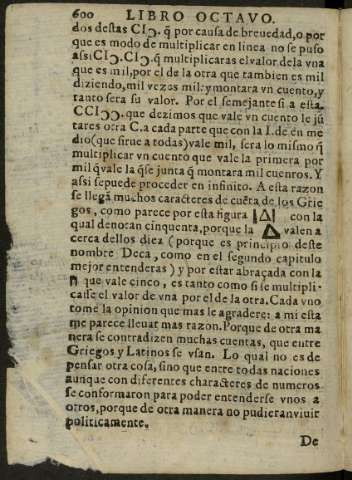 600 LIBRO OCTAVO.
dos destas CIↃ. q̃ por causa de breuedad, o por
que es modo de multiplicar en linea no se puso
assi CIↃ.CIↃ. q̃ multiplicaras el valor dela vna
que es mil, por el de la otra que tambien es mil
diziendo, mil vezes mil: y montara vn cuento, y
tanto sera su valor. Por el semejante si a esta
CCIↃↃ. que dezimos que vale vn cuento le jũ
tares otra C. a cada parte que con la I. de en me
dio (que sirue a todas) vale mil, sera lo mismo q̃
multiplicar vn cuento que vale la primera por
mil q̃ vale la q̃ se junta q̃ montara mil cuenros. Y
assi se puede proceder en infinito. A esta razon
se llegã muchos caracteres de cuẽta de los Grie
gos, como parece por esta figura |Δ| con la
qual denotan cinquenta, porque la Δ valen a
cerca dellos diez (porque es principio deste
nombre Deca, como en el segundo capitulo
mejor entenderas) y por estar abraçada con la
Π que vale cinco, es tanto como si se multipli-
casse el valor de vna por el de la otra. Cada vno
tome la opinion que mas le agradere: a mi esta
me parece lleuar mas razon. Porque de otra ma
nera se contradizen muchas cuentas, que entre
Griegos y Latinos se vsan. Lo qual no es de
pensar otra cosa, sino que entre todas naciones
aunque con diferentes characteres de numeros
se conformaron para poder entenderse vnos a
otros, porque de otra manera no pudieran viuir
politicamente.
De